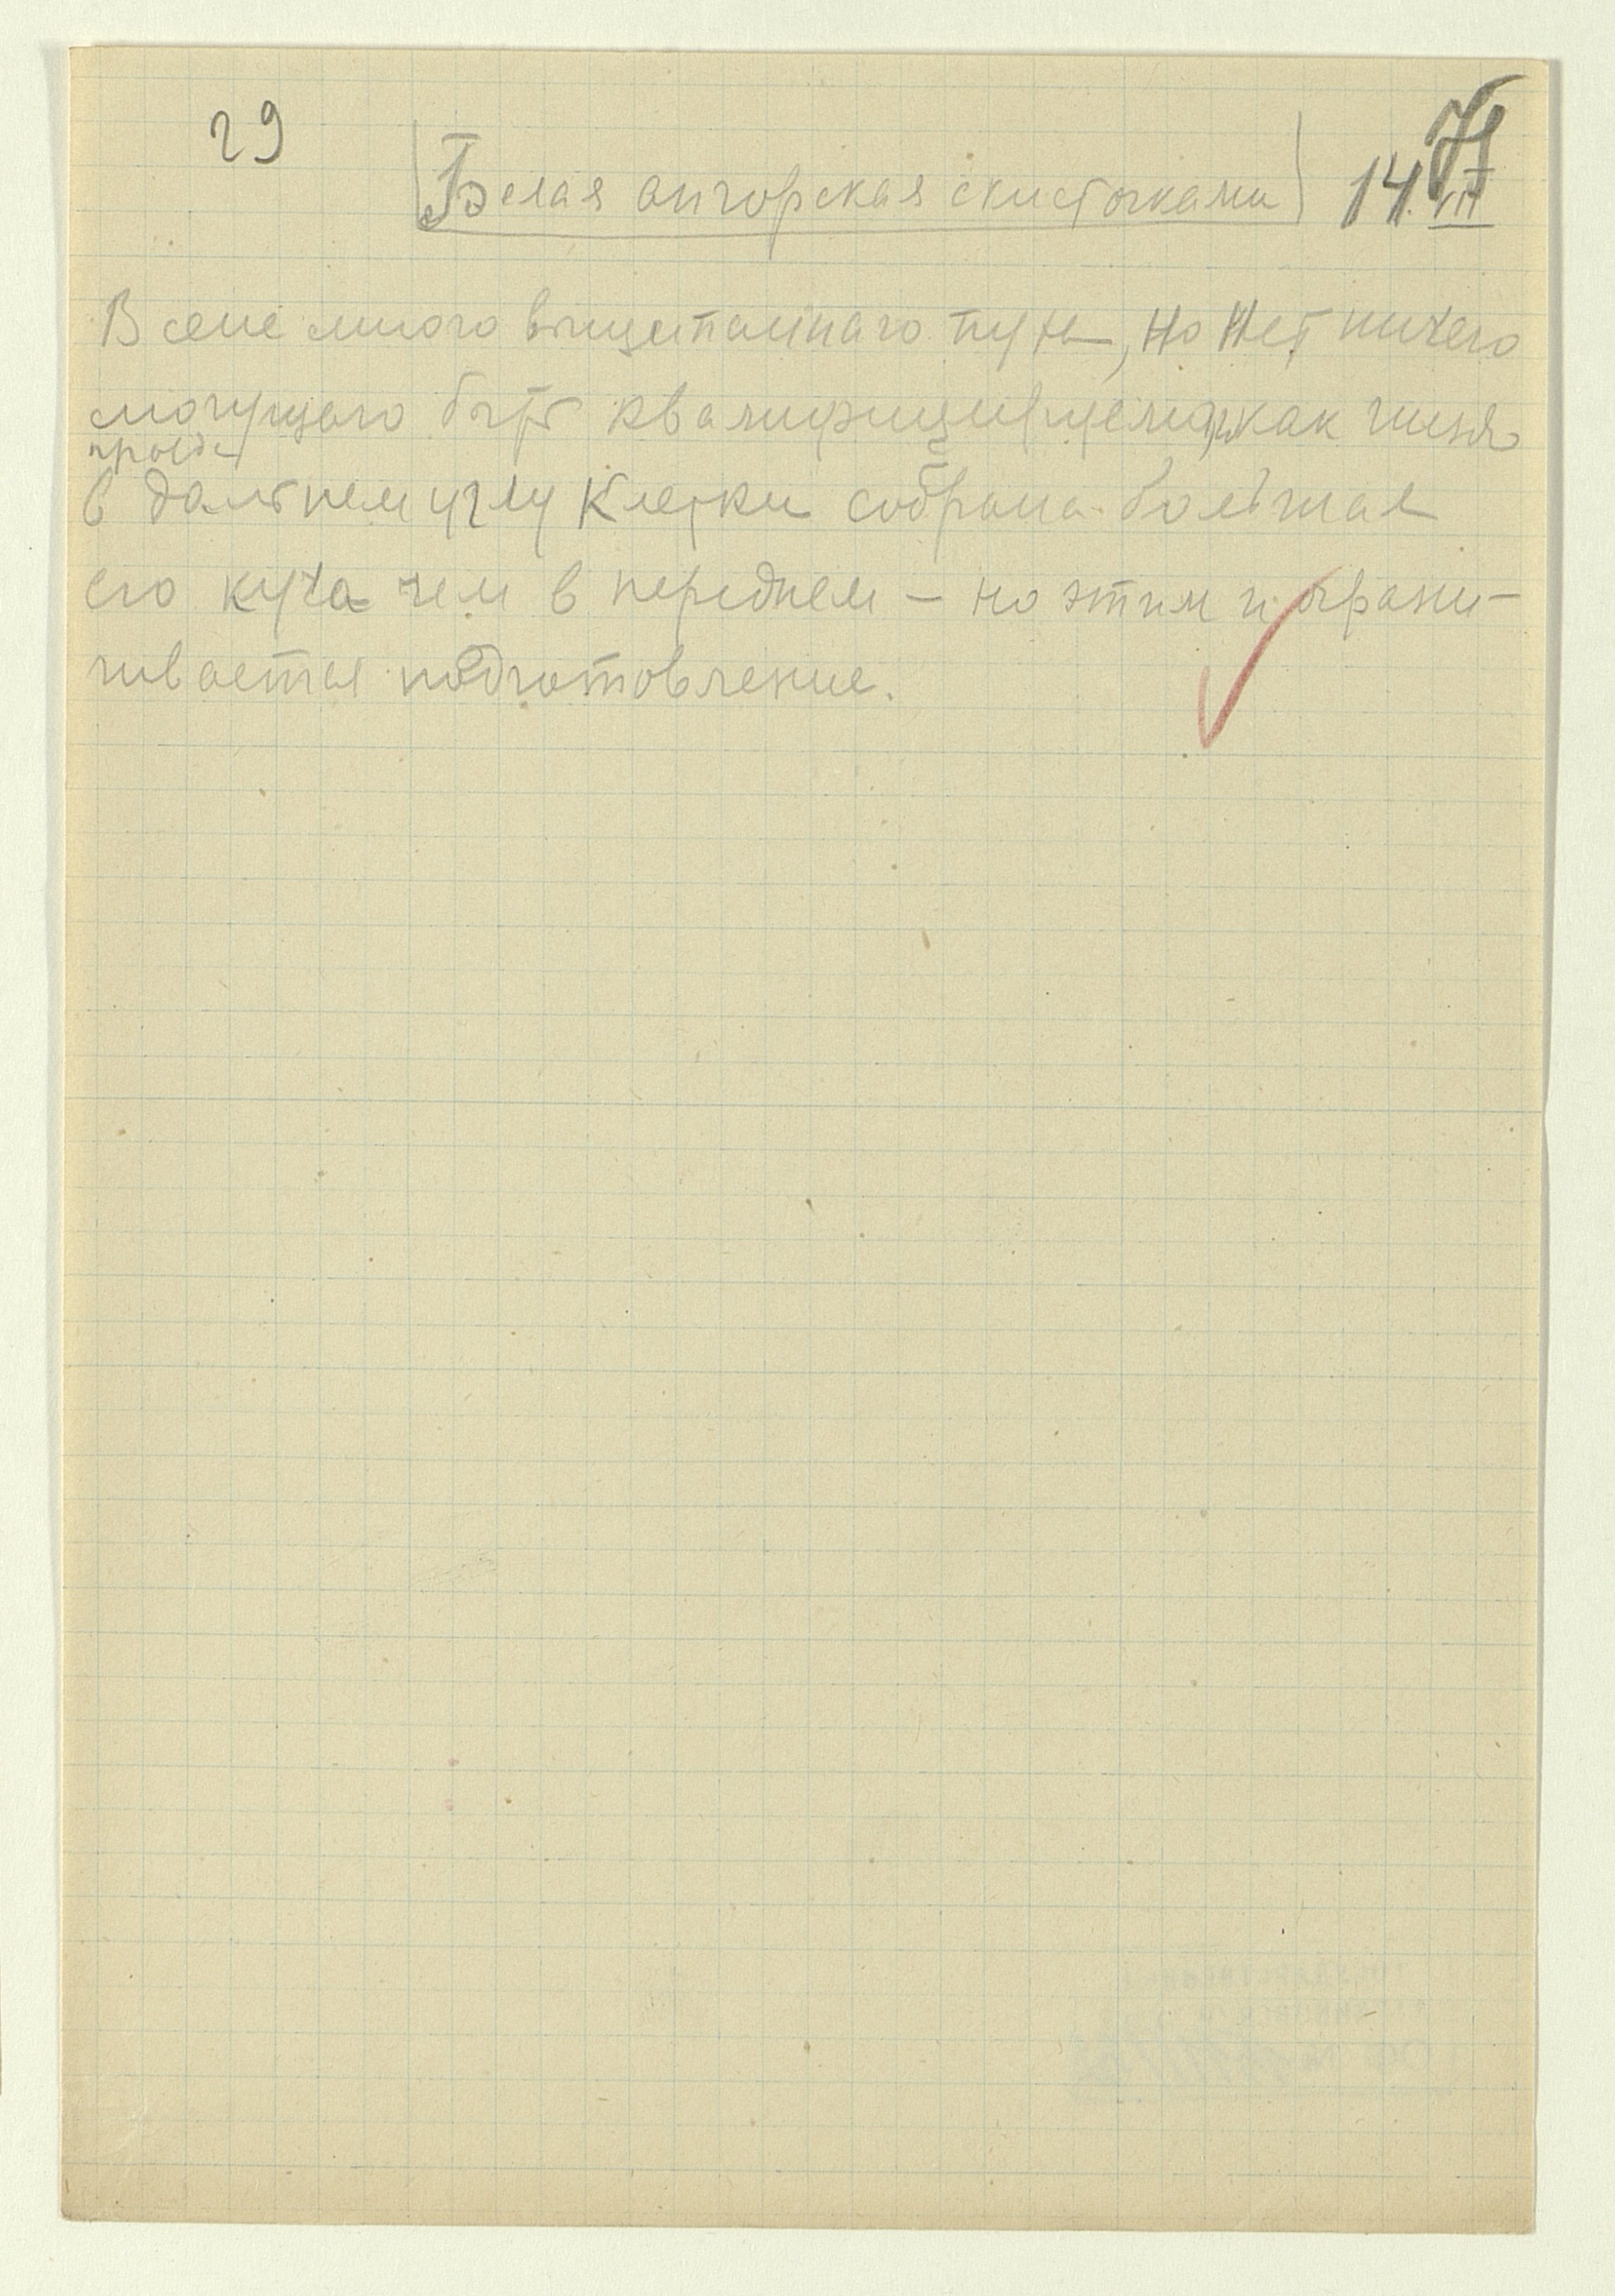 29
Белая ангорская с кисточками 14.VII
71
В сене много выщипаннаго пуха, но нет ничего
могущего быть как гнездо
правда
в дальнем углу клетки собрана большая
его куча чем в переднем — но этим и ограни-
чивается подготовление.